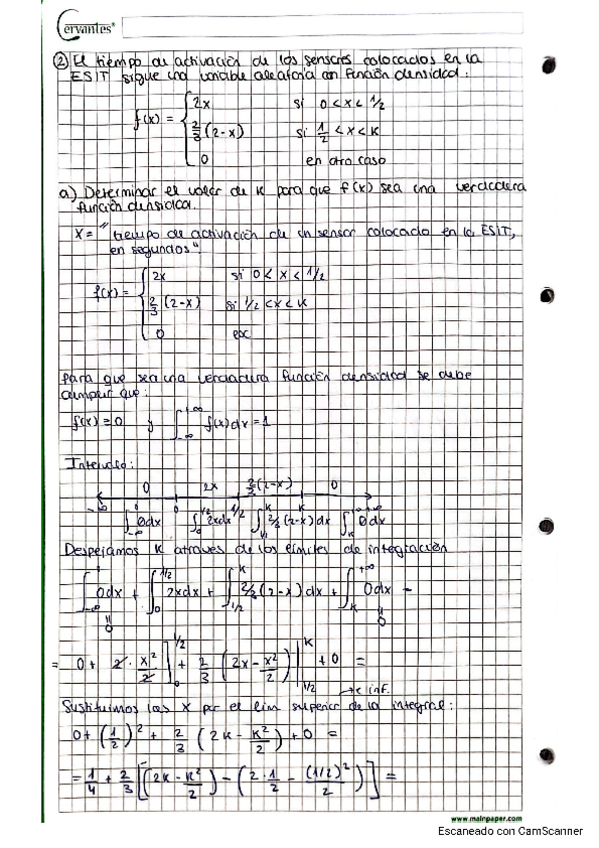 Cervantes
② El tiempo de activación de los sensores colocados en la
ESIT sigue una variable aleatoria con función densidad:
f(x) = { 2x si 0 < x < 1/2
2/3 (2-x) si 1/2 < x < k
0 en otro caso
a) Determinar el valor de k para que f(x) sea una verdadera
función densidad.
X = "tiempo de activación de un sensor colocado en la ESIT,
en segundos".
f(x) = { 2x si 0 < x < 1/2
2/3 (2-x) si 1/2 < x < k
0 eoc
Para que sea una verdadera función densidad se debe
cumplir que:
f(x) ≥ 0 y ∫_{-∞}^{+∞} f(x)dx = 1
Intervalo:
0 2x 2/3(2-x) 0
-∞ 0 1/2 k +∞
∫_{-∞}^{0} 0dx ∫_{0}^{1/2} 2xdx ∫_{1/2}^{k} 2/3 (2-x)dx ∫_{k}^{+∞} 0dx
Despejamos k a traves de los límites de integración
∫_{-∞}^{0} 0dx + ∫_{0}^{1/2} 2xdx + ∫_{1/2}^{k} 2/3 (2-x)dx + ∫_{k}^{+∞} 0dx =
0 0
= 0 + 2 · x²/2 ]_{0}^{1/2} + 2/3 (2x - x²/2) |_{1/2}^{k} + 0 =
→ e inf.
Sustituimos las x por el lim superior de la integral:
0 + (1/2)² + 2/3 (2k - k²/2) + 0 =
= 1/4 + 2/3 [(2k - k²/2) - (2 · 1/2 - (1/2)²/2)] =
www.mainpaper.com
Escaneado con CamScanner